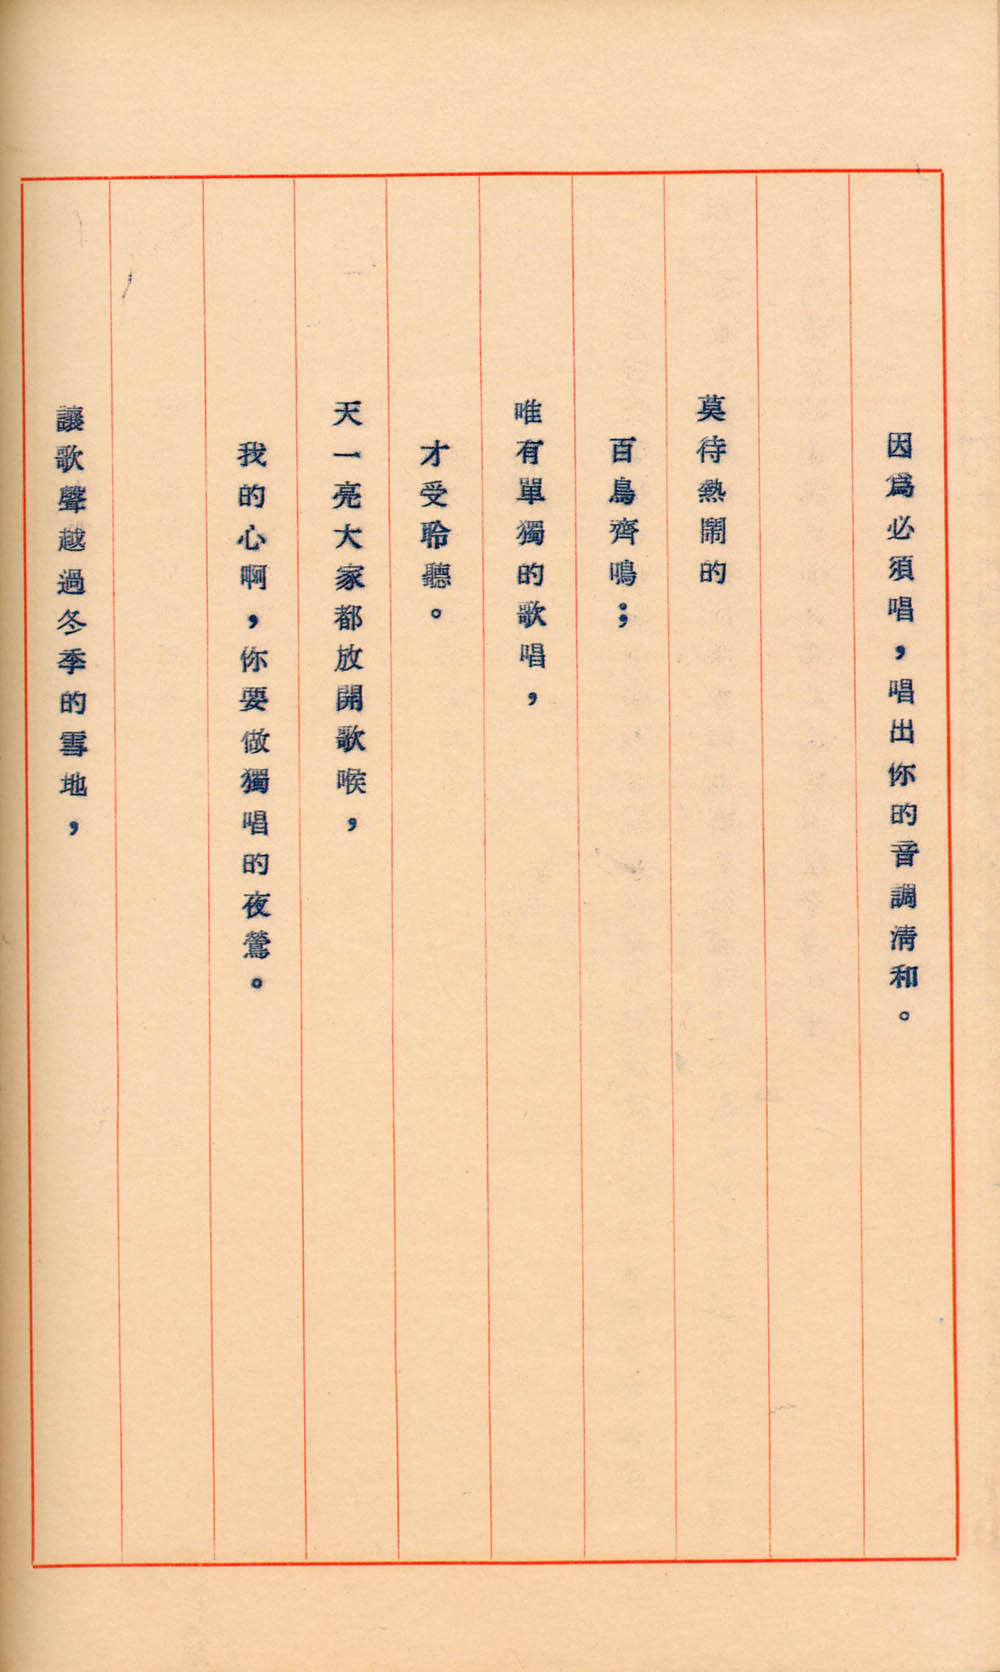 因爲必須唱，唱出你的音調淸和。
莫待熱鬧的
百鳥齊鳴；
唯有單獨的歌唱，
才受聆聽。
天一亮大家都放開歌喉，
我的心啊，你要做獨唱的夜鶯。
讓歌聲越過冬季的雪地，